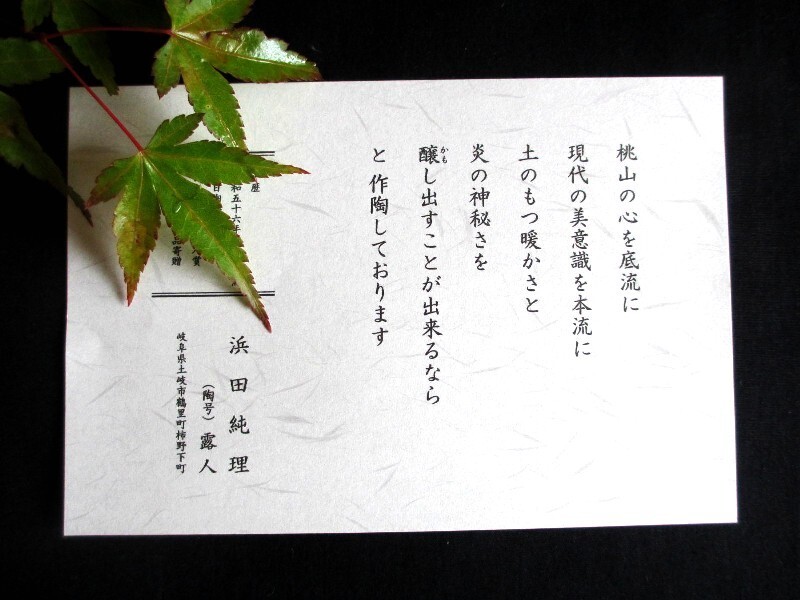 桃山の心を底流に
現代の美意識を本流に
土のもつ暖かさと
炎の神秘さを
醸し出すことが出来るなら
かも
と 作陶しております
歴
和五十六年
賞
品寄贈
浜田純理
(陶号) 露人
岐阜県土岐市鶴里町柿野下町